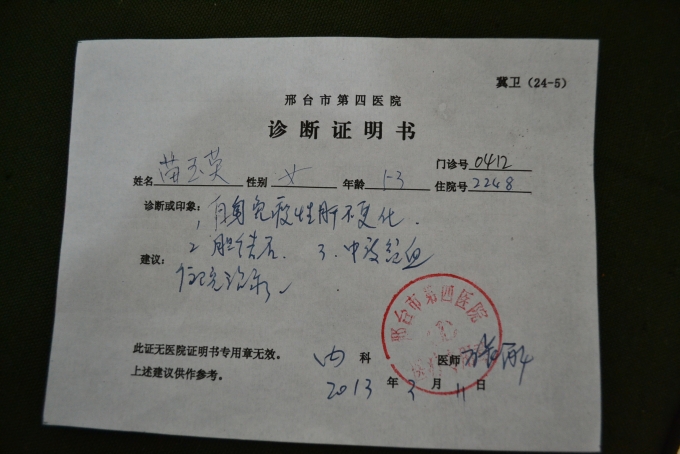 冀卫（24-5）
邢台市第四医院
诊断证明书
门诊号 0412
姓名 苗玉英 性别 女 年龄 53 住院号 2248
诊断或印象： 1、自身免疫性肝硬变化.
2、胆结石. 3、中度贫血
建议： 住院治疗、
邢台市第四医院
此证无医院证明书专用章无效。 内科 医师
上述建议供作参考。 2013年3月11日